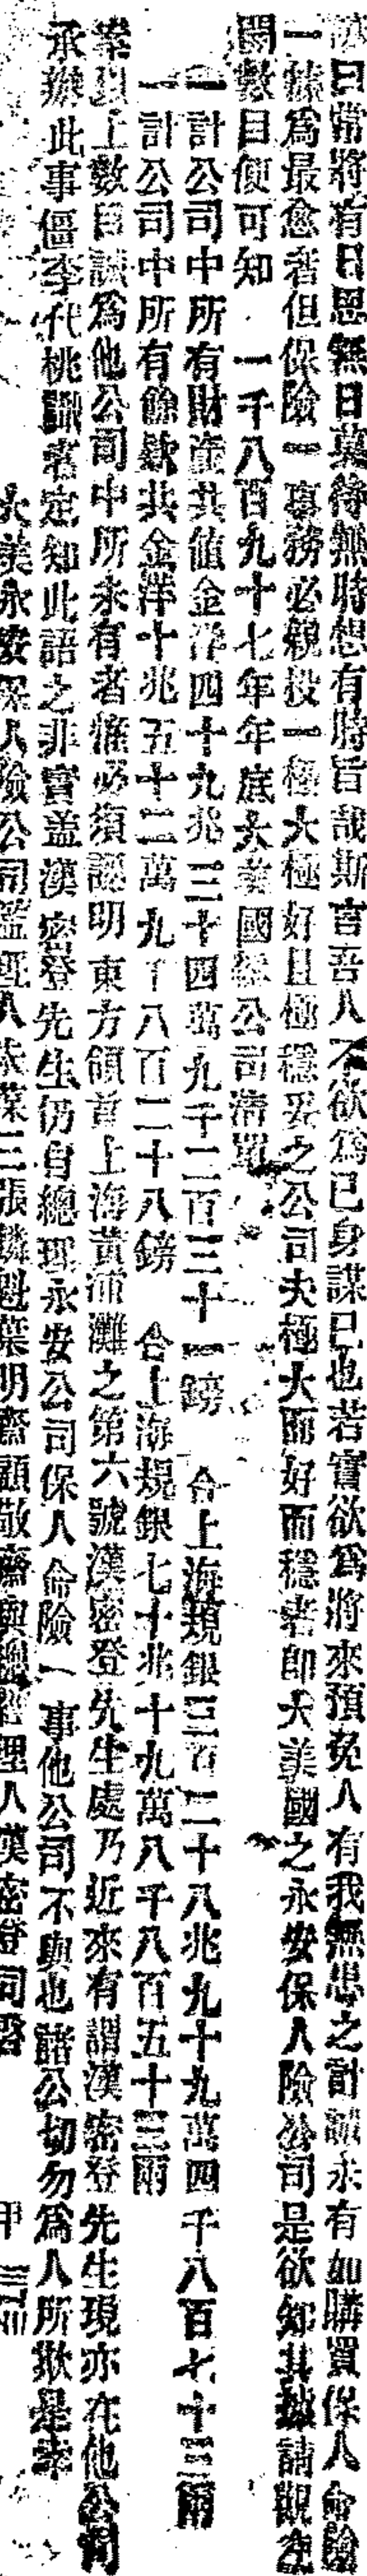 諺曰常將有日思無日莫待無時想有時旨哉斯言吾人不欲爲己身謀已也若實欲爲將來預免人有我無患之計誠未有如購買保人命險
一條爲最愈者但保險一事務必親投一極大極好且極穩妥之公司夫極大而好而穩者即大美國之永安保人險公司是欲知其據請觀左
開數目便可知 一千八百九十七年年底大美國該公司清單
一計公司中所有財產共值金洋四十九兆三十四萬九千二百三十一鎊 合上海規銀三百二十八兆九十九萬四千八百七十三兩
一計公司中所有餘欵共金洋十兆五十二萬九千八百二十八鎊 合上海規銀七十兆十九萬八千八百五十三兩
案以上數目誠爲他公司中所未有者惟必須認明東方領首上海黃浦灘之第六號漢密登先生處乃近來有謂漢密登先生現亦在他公司
承辦此事僵李代桃識者定知此語之非實盖漢密登先生仍自總理永安公司保人命險一事他公司不與也諸公切勿爲人所欺是幸
大美永安保人險公司 張麟魁葉明齋顧敬齋與總經理人漢密登同啓